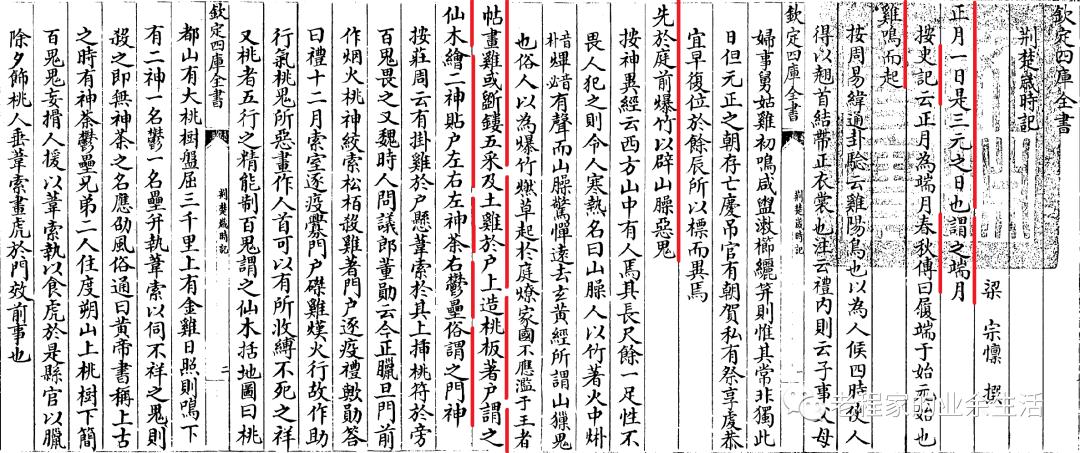 欽定四庫全書
荆楚歲時記
梁 宗懍 撰
正月一日是三元之日也謂之端月
按史記云正月為端月春秋傳曰履端于始元始也
雞鳴而起
按周易緯通卦驗云雞陽鳥也以為人候四時使人
得以翹首結帶正衣裳也注云禮内則云子事父母
欽定四庫全書
荆楚歲時記
婦事舅姑雞初鳴咸盥漱櫛纚笄則惟其常非獨此
日但元正之朝存亡慶吊官有朝賀私有祭享虔恭
宜早復位於餘辰所以標而異焉
先於庭前爆竹以辟山臊惡鬼
按神異經云西方山中有人焉其長尺餘一足性不
畏人犯之則令人寒熱名曰山臊人以竹著火中烞
音朴熚音必有聲而山臊驚憚遠去玄黃經所謂山㺐鬼
也俗人以為爆竹燃草起於庭燎家國不應濫于王者
帖畫雞或斲鏤五采及土雞於户上造桃板著户謂之
仙木繪二神貼户左右左神荼右鬱壘俗謂之門神
按莊周云有掛雞於户懸葦索於其上插桃符於旁
百鬼畏之又魏時人問議郎董勛云今正臘旦門前
作烟火桃神絞索松栢殺雞著門户逐疫禮歟勛答
曰禮十二月索室逐疫釁門户磔雞熯火行故作助
行氣桃鬼所惡畫作人首可以有所收縛不死之祥
又桃者五行之精能制百鬼謂之仙木括地圖曰桃
欽定四庫全書
荆楚歲時記
二
都山有大桃樹盤屈三千里上有金雞日照則鳴下
有二神一名鬱一名壘并執葦索以伺不祥之鬼則
殺之即無神荼之名應劭風俗通曰黃帝書稱上古
之時有神荼鬱壘兄弟二人住度朔山上桃樹下簡
百鬼鬼妄搰人援以葦索執以食虎於是縣官以臘
除夕飾桃人垂葦索畫虎於門效前事也
程家的业余生活